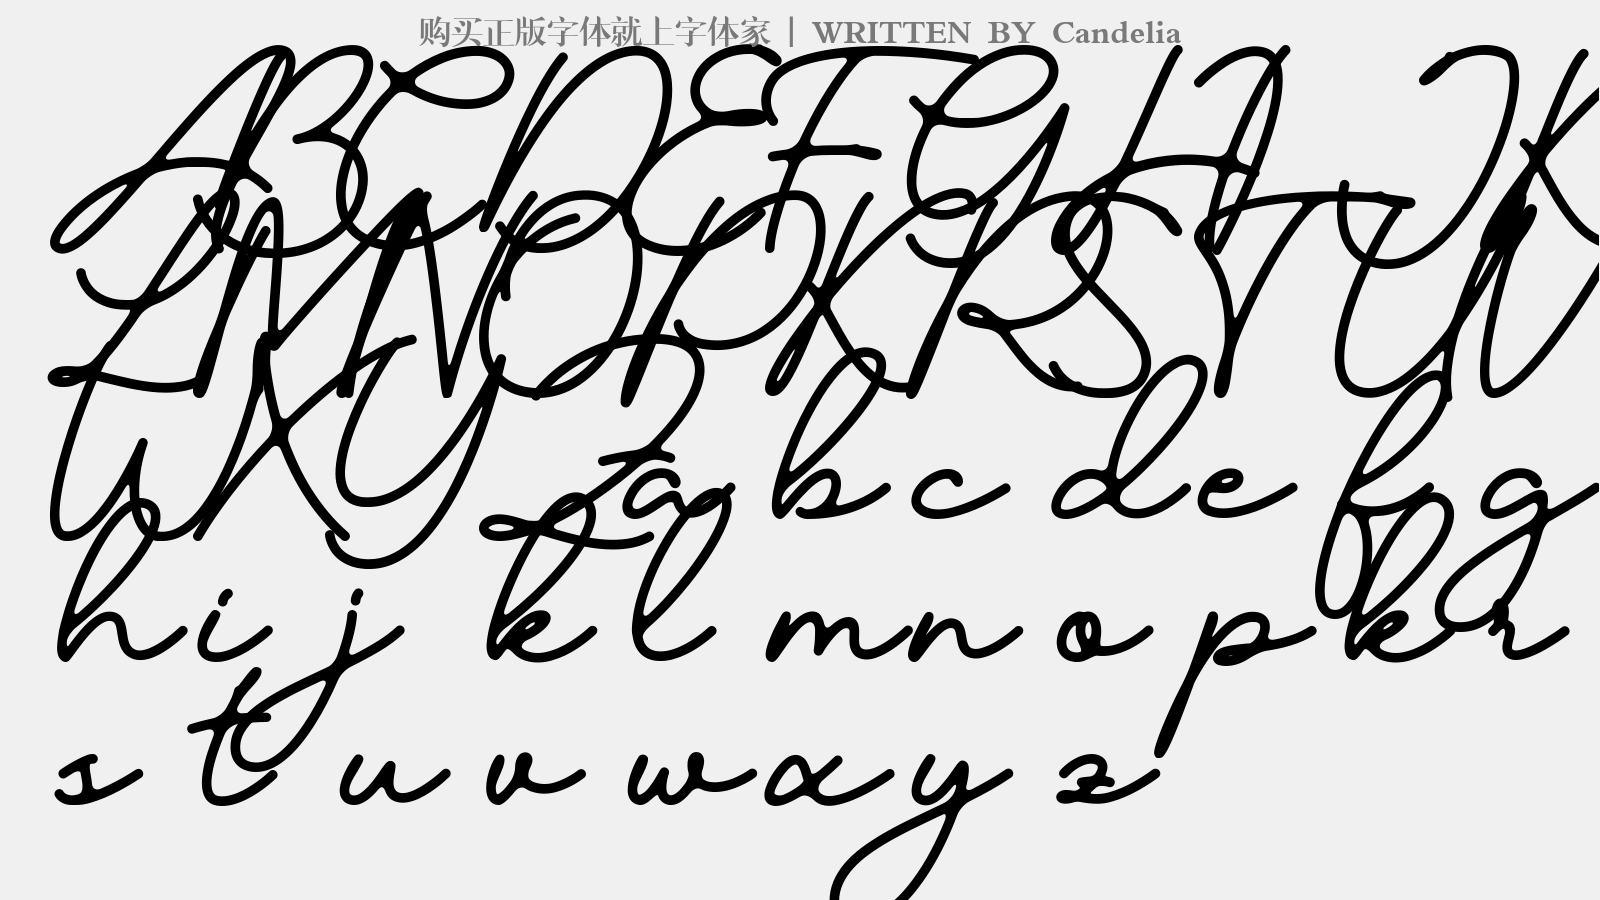 购买正版字体就上字体家 | WRITTEN BY Candelia
ABCDEFGHIJK
LMNOPKRSTUV
WXYZabcdefg
hijklmnopkr
stuvwxyz